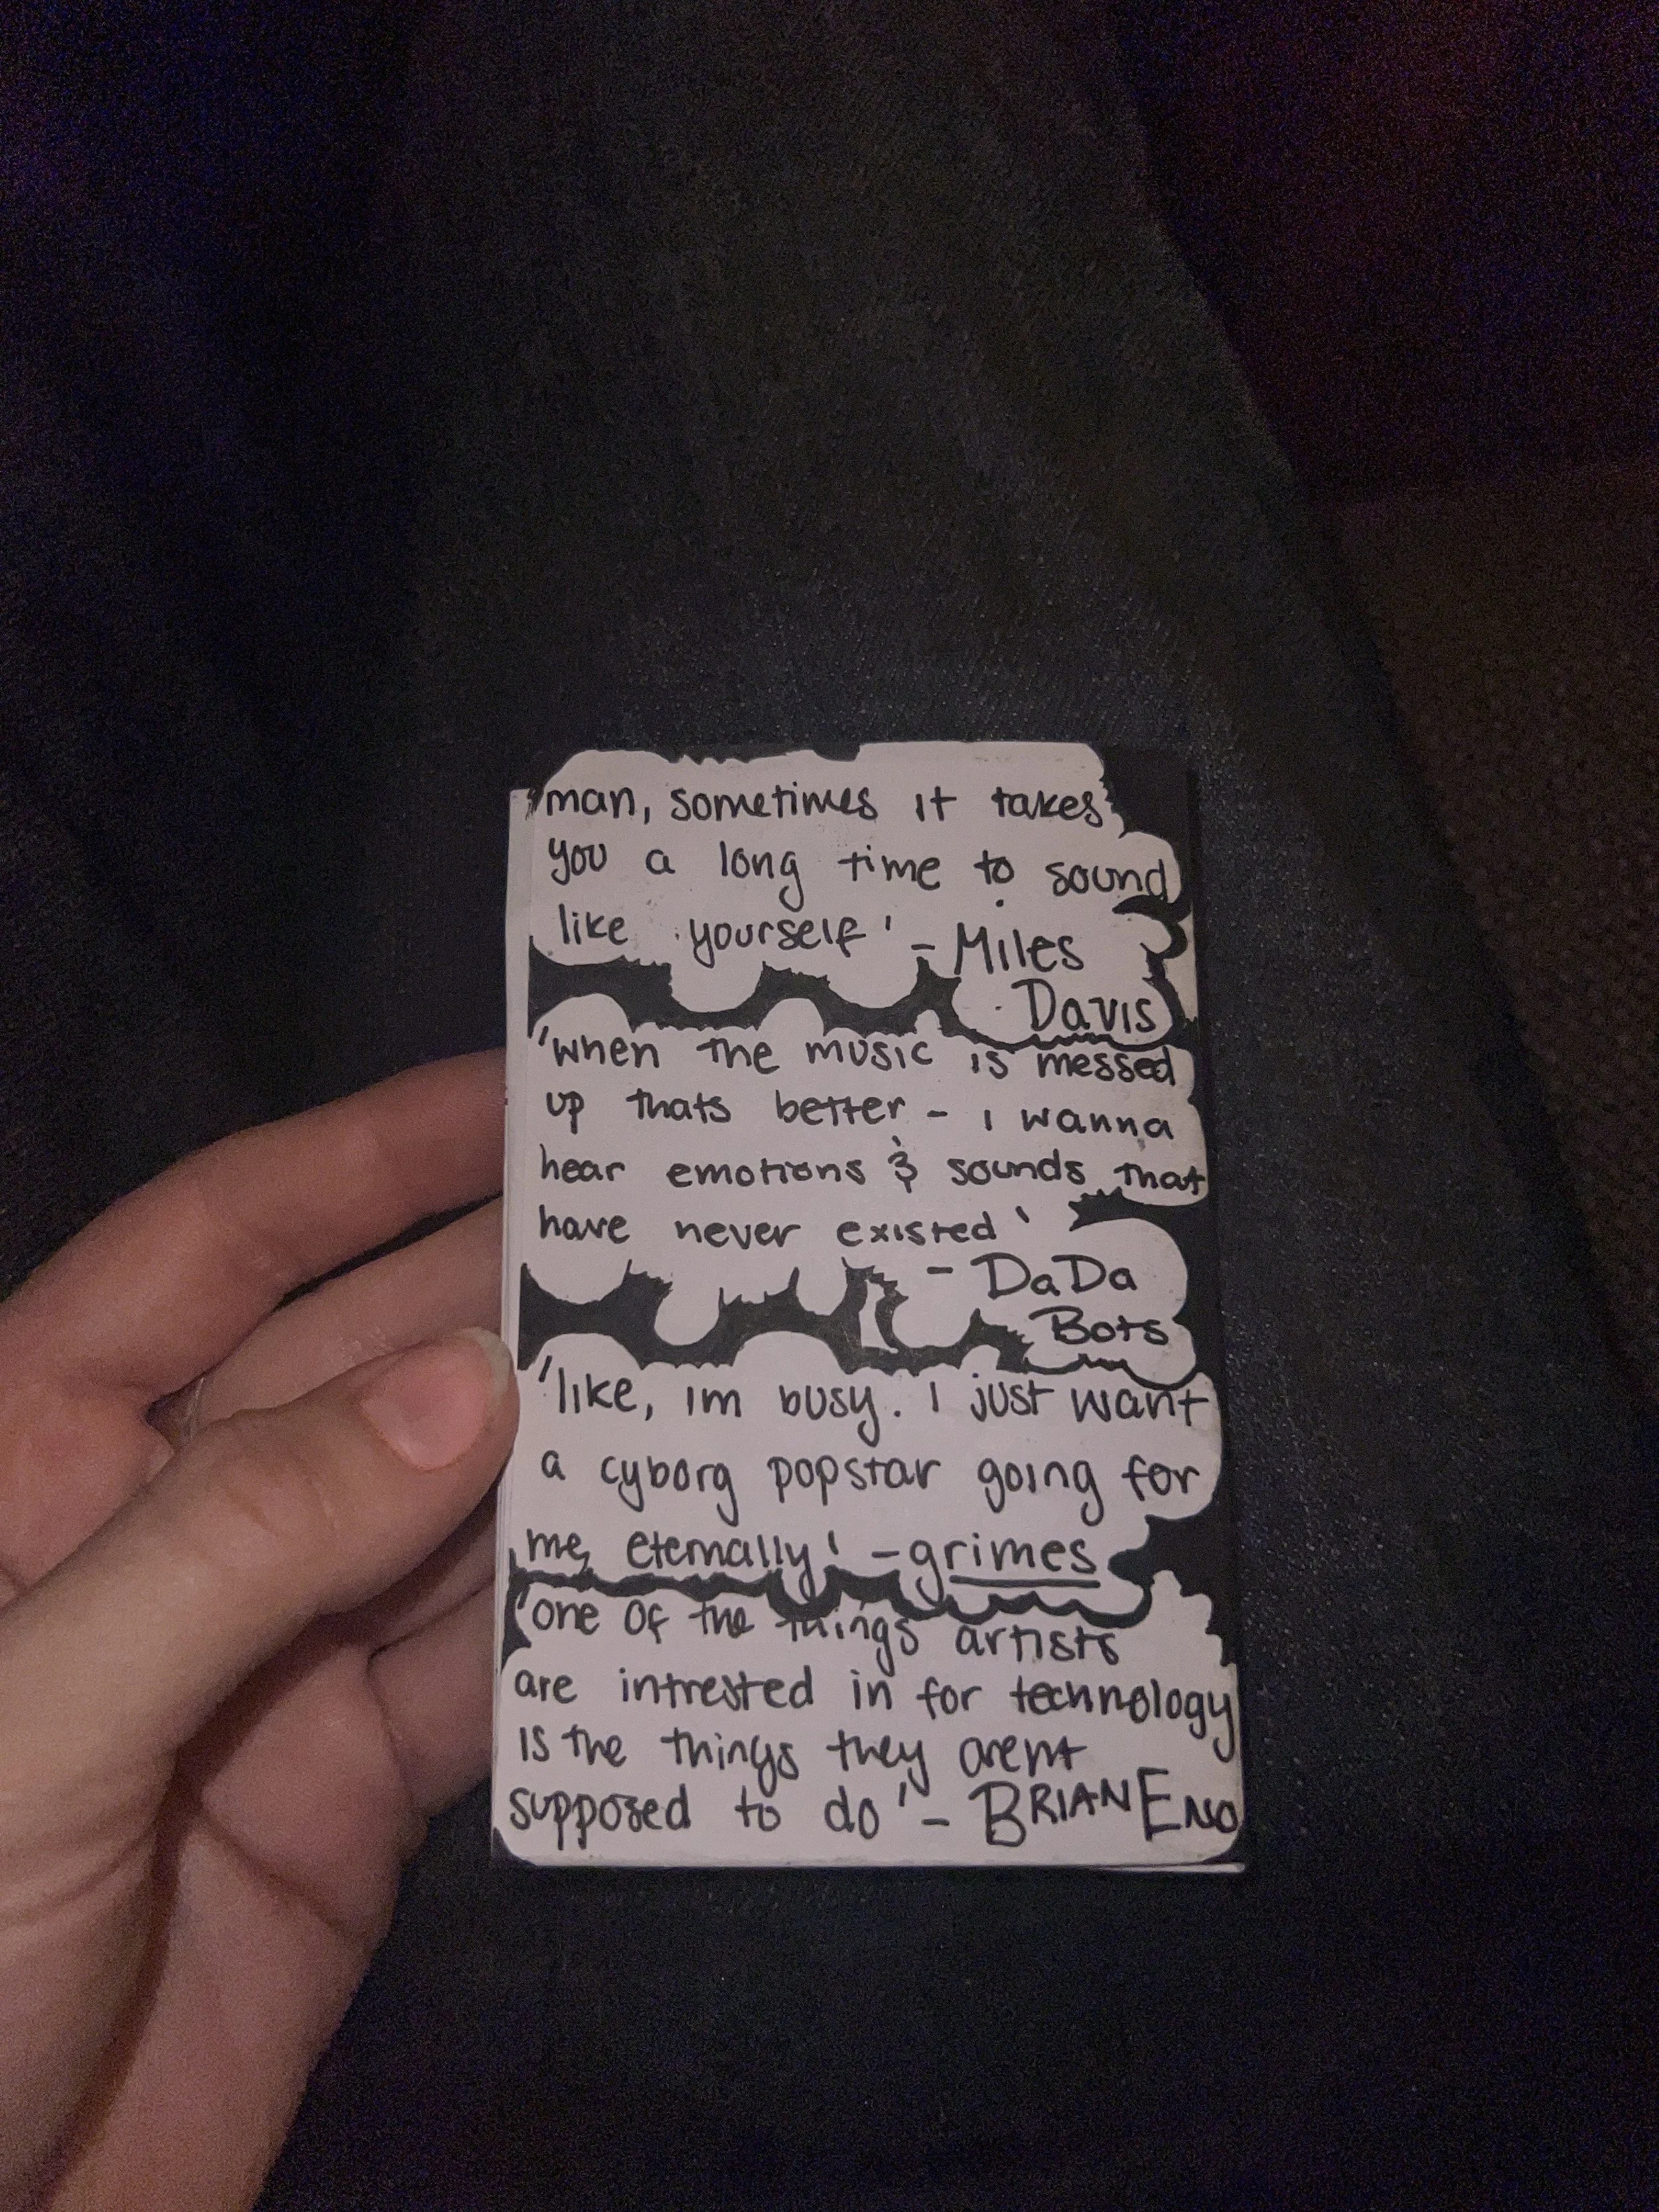 'man, sometimes it takes
you a long time to sound
like yourself' - Miles
Davis
'when the music is messed
up thats better - i wanna
hear emotions & sounds that
have never existed'
- DaDa
Bots
'like, im busy. i just want
a cyborg popstar going for
me, eternally' - grimes
'one of the things artists
are intrested in for technology
is the things they arent
supposed to do' - BRIAN ENO